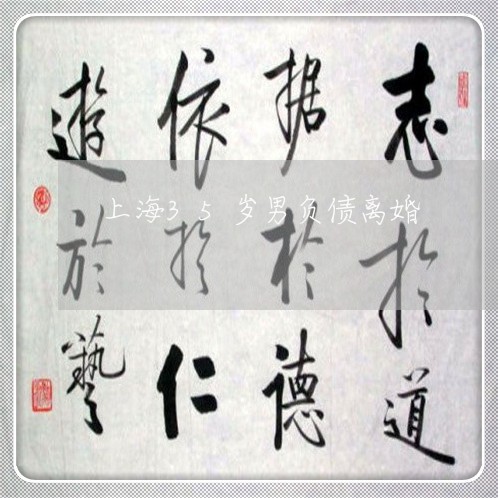 志於道
据於德
依於仁
遊於藝
上海35岁男负债离婚